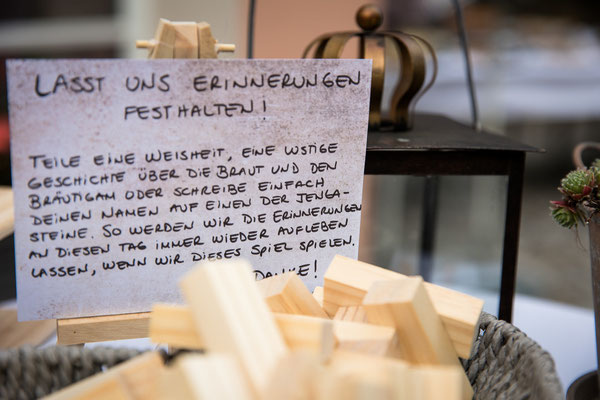 LASST UNS ERINNERUNGEN
FESTHALTEN!
TEILE EINE WEISHEIT, EINE LUSTIGE
GESCHICHTE ÜBER DIE BRAUT UND DEN
BRÄUTIGAM ODER SCHREIBE EINFACH
DEINEN NAMEN AUF EINEN DER JENGA-
STEINE. SO WERDEN WIR DIE ERINNERUNGEN
AN DIESEN TAG IMMER WIEDER AUFLEBEN
LASSEN, WENN WIR DIESES SPIEL SPIELEN.
DANKE!